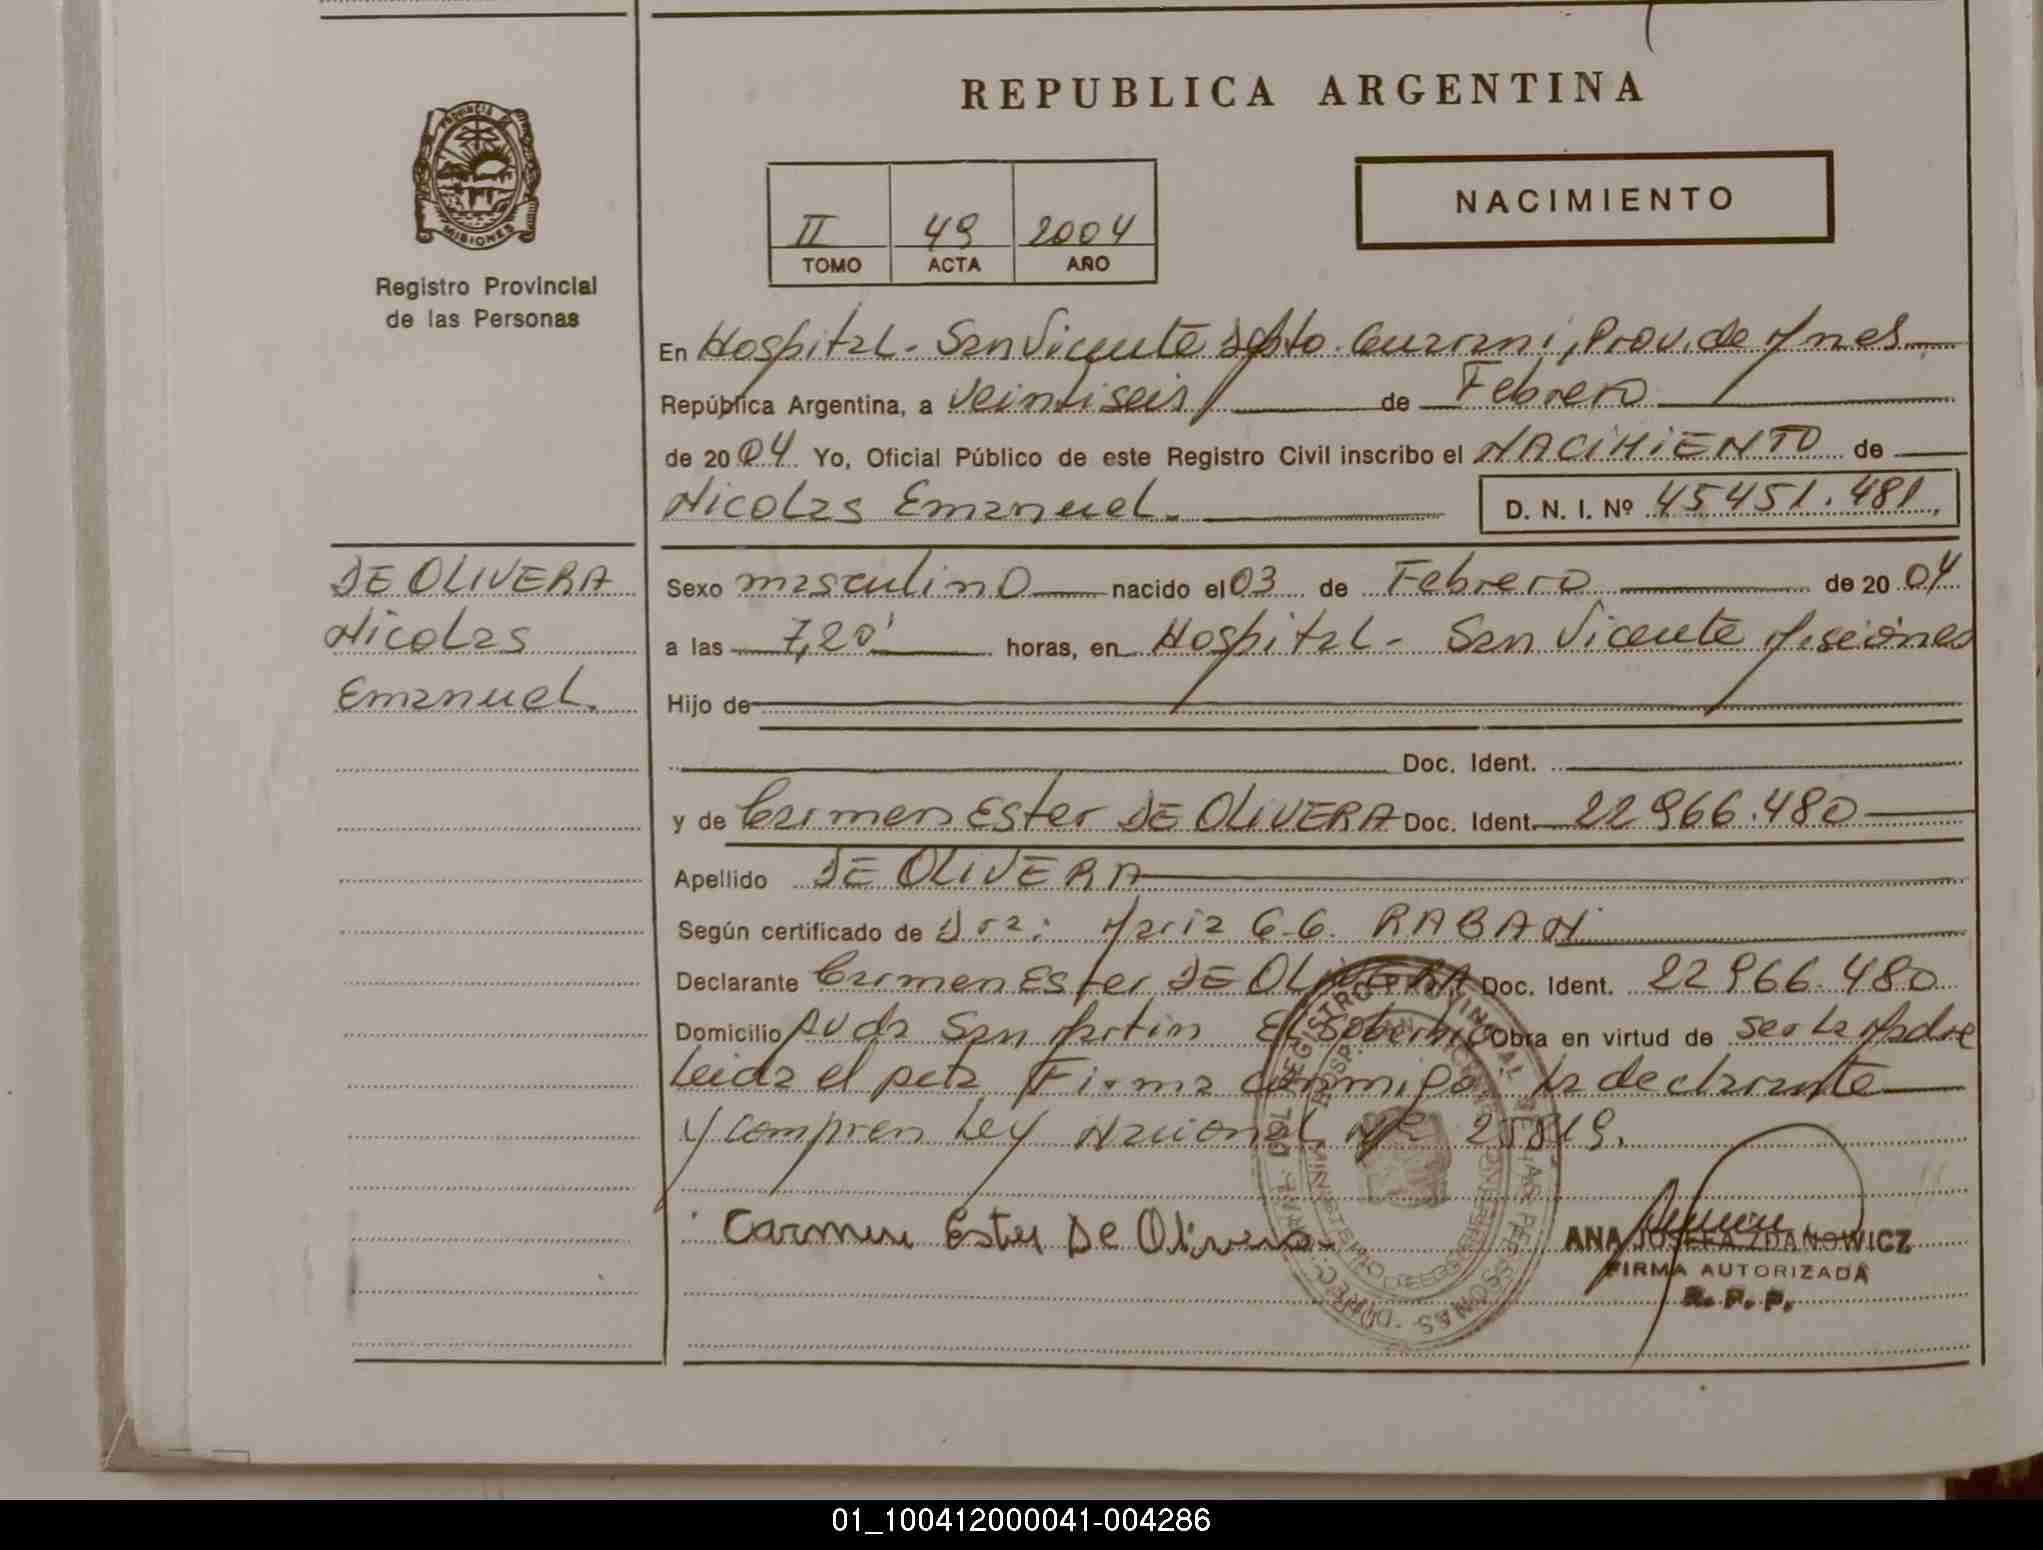 REPUBLICA ARGENTINA
PROVINCIA DE
MISIONES
Registro Provincial
de las Personas
II 49 2004
TOMO ACTA AÑO
NACIMIENTO
En Hospital - San Vicente Dpto. Guarani, Prov. de Mnes
República Argentina, a veintiseis de Febrero
de 2004 Yo, Oficial Público de este Registro Civil inscribo el NACIMIENTO de
Nicolas Emanuel. D. N. I. Nº 45451.481
DE OLIVERA
Nicolas
Emanuel.
Sexo masculino nacido el 03 de Febrero de 2004
a las 7,20' horas, en Hospital - San Vicente Misiones
Hijo de
Doc. Ident.
y de Carmen Ester DE OLIVERA Doc. Ident. 22966.480
Apellido DE OLIVERA
Según certificado de Dra: Maria G. G. RABAN
Declarante Carmen Ester DE OLIVERA Doc. Ident. 22966.480
Domicilio Avda San Martin El Soberbio Obra en virtud de ser la Madre
Leida el acta, Firma conmigo la declarante
y compren Ley Nacional Nº 25819.
Carmen Ester De Olivera
ANA JOSEFA ZDANOWICZ
FIRMA AUTORIZADA
R. P. P.
01_100412000041-004286